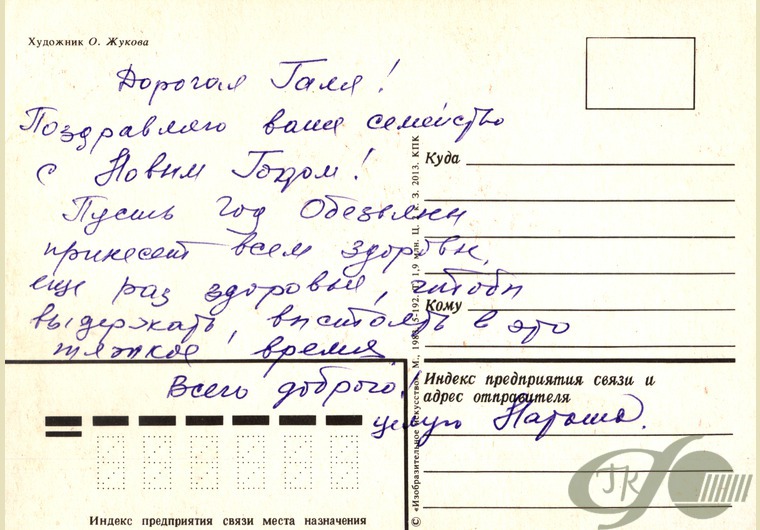 Художник О. Жукова
Дорогая Галя!
Поздравляю ваше семейство
с Новым Годом!
Пусть год Обезьяны
принесет всем здоровья,
еще раз здоровья, чтобы
выдержать, выстоять в это
тяжкое время.
Всего доброго!
целую Наташа.
Куда
Кому
Индекс предприятия связи и
адрес отправителя
Индекс предприятия связи места назначения
© «Изобразительное искусство». М., 1982. 5-192. 1,9 млн. Ц. З. 2013. КПК
ГК